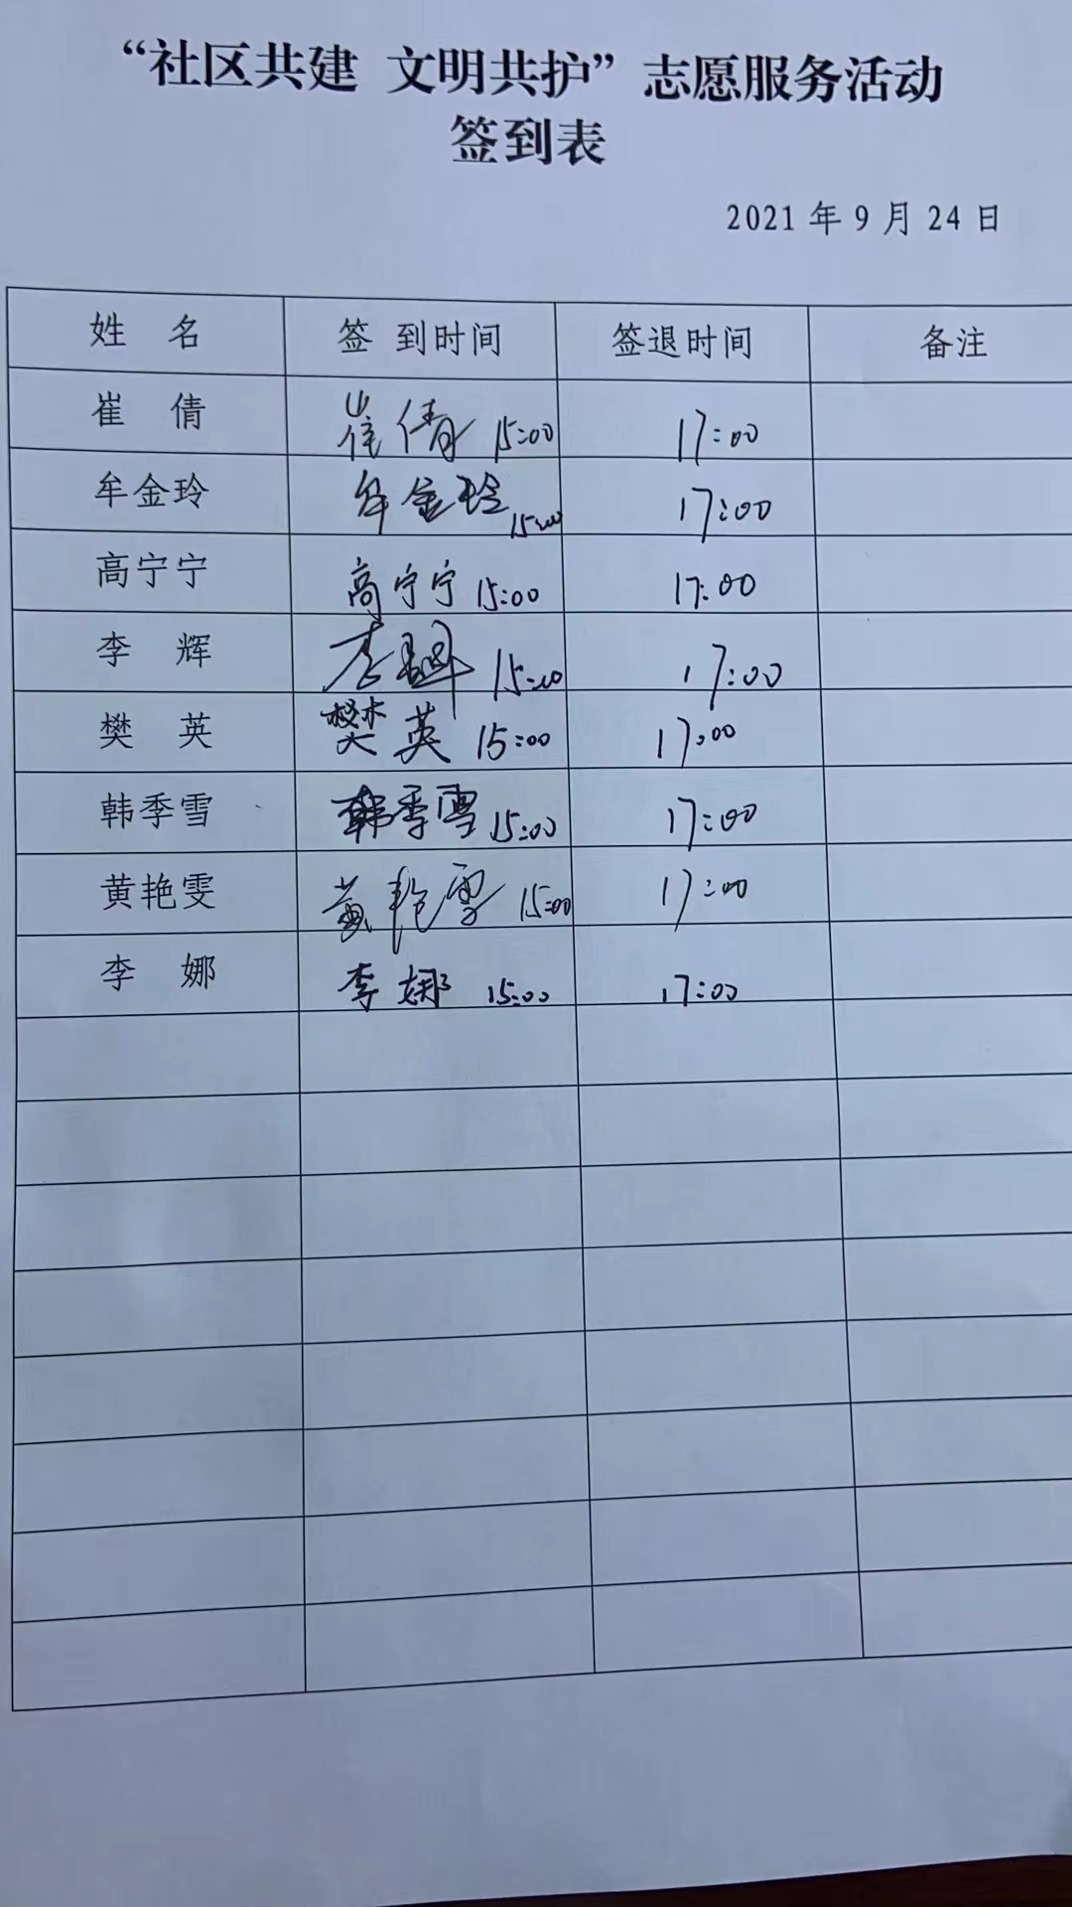 “社区共建 文明共护”志愿服务活动
签到表
2021年9月24日
姓 名 签 到时间 签退时间 备注
崔 倩 崔倩 15:00 17:00
牟金玲 牟金玲 15:00 17:00
高宁宁 高宁宁 15:00 17:00
李 辉 李辉 15:00 17:00
樊 英 樊英 15:00 17:00
韩季雪 韩季雪 15:00 17:00
黄艳雯 黄艳雯 15:00 17:00
李 娜 李娜 15:00 17:00